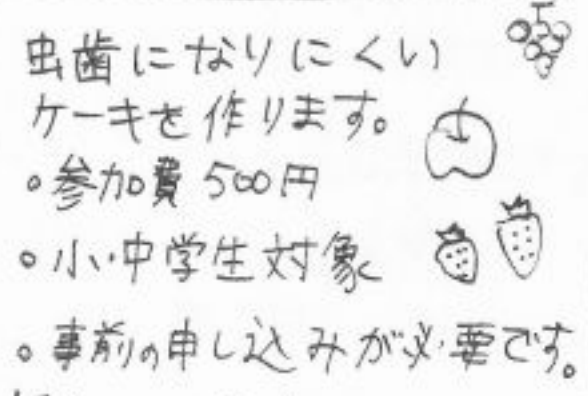 虫歯になりにくい
ケーキを作ります。
。参加費 500円
。小・中学生対象
。事前の申し込みが必要です。